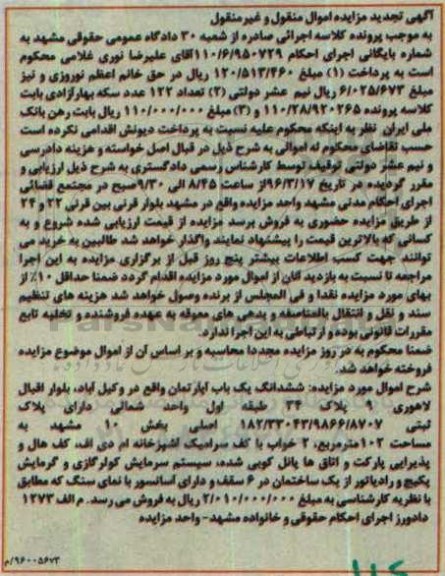 آگهی تجدید مزایده اموال منقول و غیر منقول
به موجب پرونده کلاسه اجرائی صادره از شعبه ۳۰ دادگاه عمومی حقوقی مشهد به
شماره بایگانی اجرای احکام ۱۱۰/۶/۹۵۰۷۲۹آقای علیرضا نوری غلامی محکوم
است به پرداخت (۱) مبلغ ۱۲۰/۵۱۳/۴۶۰ ریال در حق خانم اعظم نوروزی و نیز
مبلغ ۶/۰۲۵/۶۷۳ ریال نیم عشر دولتی (۲) تعداد ۱۲۲ عدد سکه بهارآزادی بابت
کلاسه پرونده ۱۱۰/۲۸/۹۲۰۲۶۵ و (۳) مبلغ ۱۱۰/۰۰۰/۰۰۰ ریال بابت رهن بانک
ملی ایران نظر به اینکه محکوم علیه نسبت به پرداخت دیونش اقدامی نکرده است
حسب تقاضای محکوم له اموالی به شرح ذیل در قبال اصل خواسته و هزینه دادرسی
و نیم عشر دولتی توقیف توسط کارشناس رسمی دادگستری به شرح ذیل ارزیابی و
مقرر گردیده در تاریخ ۹۶/۳/۱۷از ساعت ۸/۴۵ الی ۹/۳۰صبح در مجتمع قضائی
اجرای احکام مدنی مشهد واحد مزایده واقع در مشهد بلوار قرنی بین قرنی ۲۲ و ۲۴
از طریق مزایده حضوری به فروش برسد مزایده از قیمت ارزیابی شده شروع و به
کسانی که بالاترین قیمت را پیشنهاد نمایند واگذار خواهد شد طالبین به خرید می
توانند جهت کسب اطلاعات بیشتر پنج روز قبل از برگزاری مزایده به این اجرا
مراجعه تا نسبت به بازدید آنان از اموال مورد مزایده اقدام گردد ضمنا حداقل ۱۰٪ از
بهای مورد مزایده نقدا و فی المجلس از برنده وصول خواهد شد هزینه های تنظیم
سند و نقل و انتقال بالمناصفه و بدهی های معوقه به عهده فروشنده و تخلیه تابع
مقررات قانونی بوده و ارتباطی به این اجرا ندارد.
ضمنا محکوم به در روز مزایده مجددا محاسبه و بر اساس آن از اموال موضوع مزایده
فروخته خواهد شد.
شرح اموال مورد مزایده: ششدانگ یک باب آپارتمان واقع در وکیل آباد، بلوار اقبال
لاهوری ۹ پلاک ۳۴ طبقه اول واحد شمالی دارای پلاک
ثبتی ۱۸۲/۳۳۰۴۳/۹۸۶۶/۸۷۰۷ اصلی بخش ۱۰ مشهد به
مساحت ۱۰۲متر مربع، ۲ خواب با کف سرامیک آشپزخانه ام دی اف، کف هال و
پذیرایی پارکت و اتاق ها پانل کوبی شده، سیستم سرمایش کولرگازی و گرمایش
پکیج و رادیاتور از یک ساختمان در ۶ سقف و دارای آسانسور با نمای سنگ که مطابق
با نظریه کارشناسی به مبلغ ۲/۰۱۰/۰۰۰/۰۰۰ ریال به فروش می رسد. م الف ۱۳۷۳
دادورز اجرای احکام حقوقی و خانواده مشهد- واحد مزایده
۹۶۰۰۵۶۷۳/م